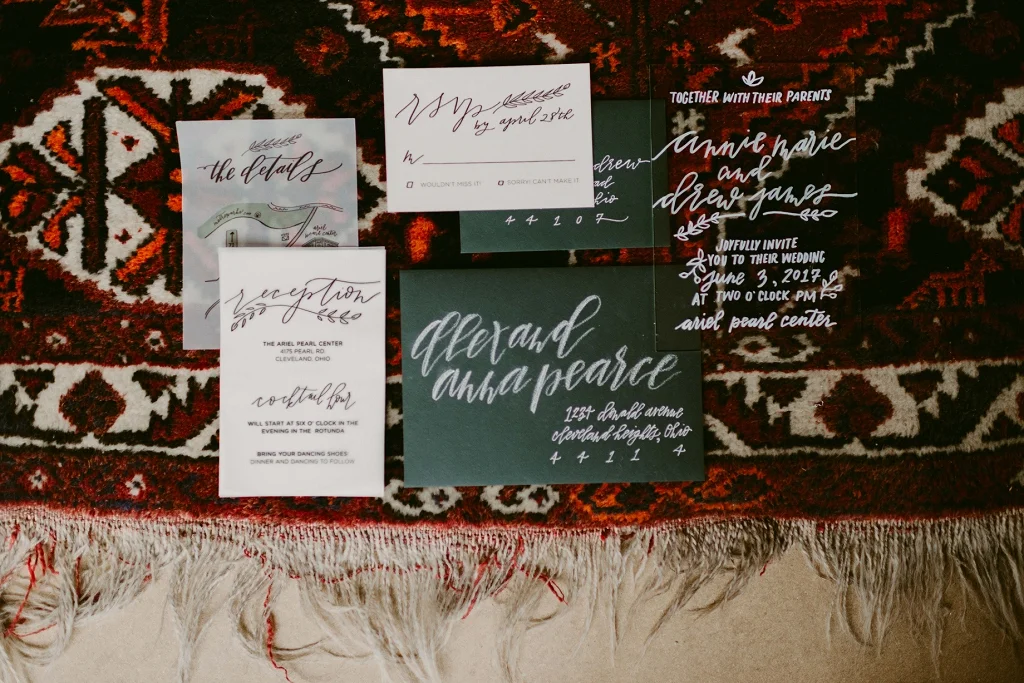 the details
ariel
pearl center
rsvp
by april 28th
M
WOULDN'T MISS IT!
SORRY! CAN'T MAKE IT
drew
44107
TOGETHER WITH THEIR PARENTS
annie marie
and
drew james
JOYFULLY INVITE
YOU TO THEIR WEDDING
June 3, 2017
AT TWO O'CLOCK PM
ariel pearl center
reception
THE ARIEL PEARL CENTER
4175 PEARL RD.
CLEVELAND, OHIO
cocktail hour
WILL START AT SIX O' CLOCK IN THE
EVENING IN THE ROTUNDA
BRING YOUR DANCING SHOES
DINNER AND DANCING TO FOLLOW
alex and
anna pearce
1234 donald avenue
cleveland heights, Ohio
4 4 1 1 4